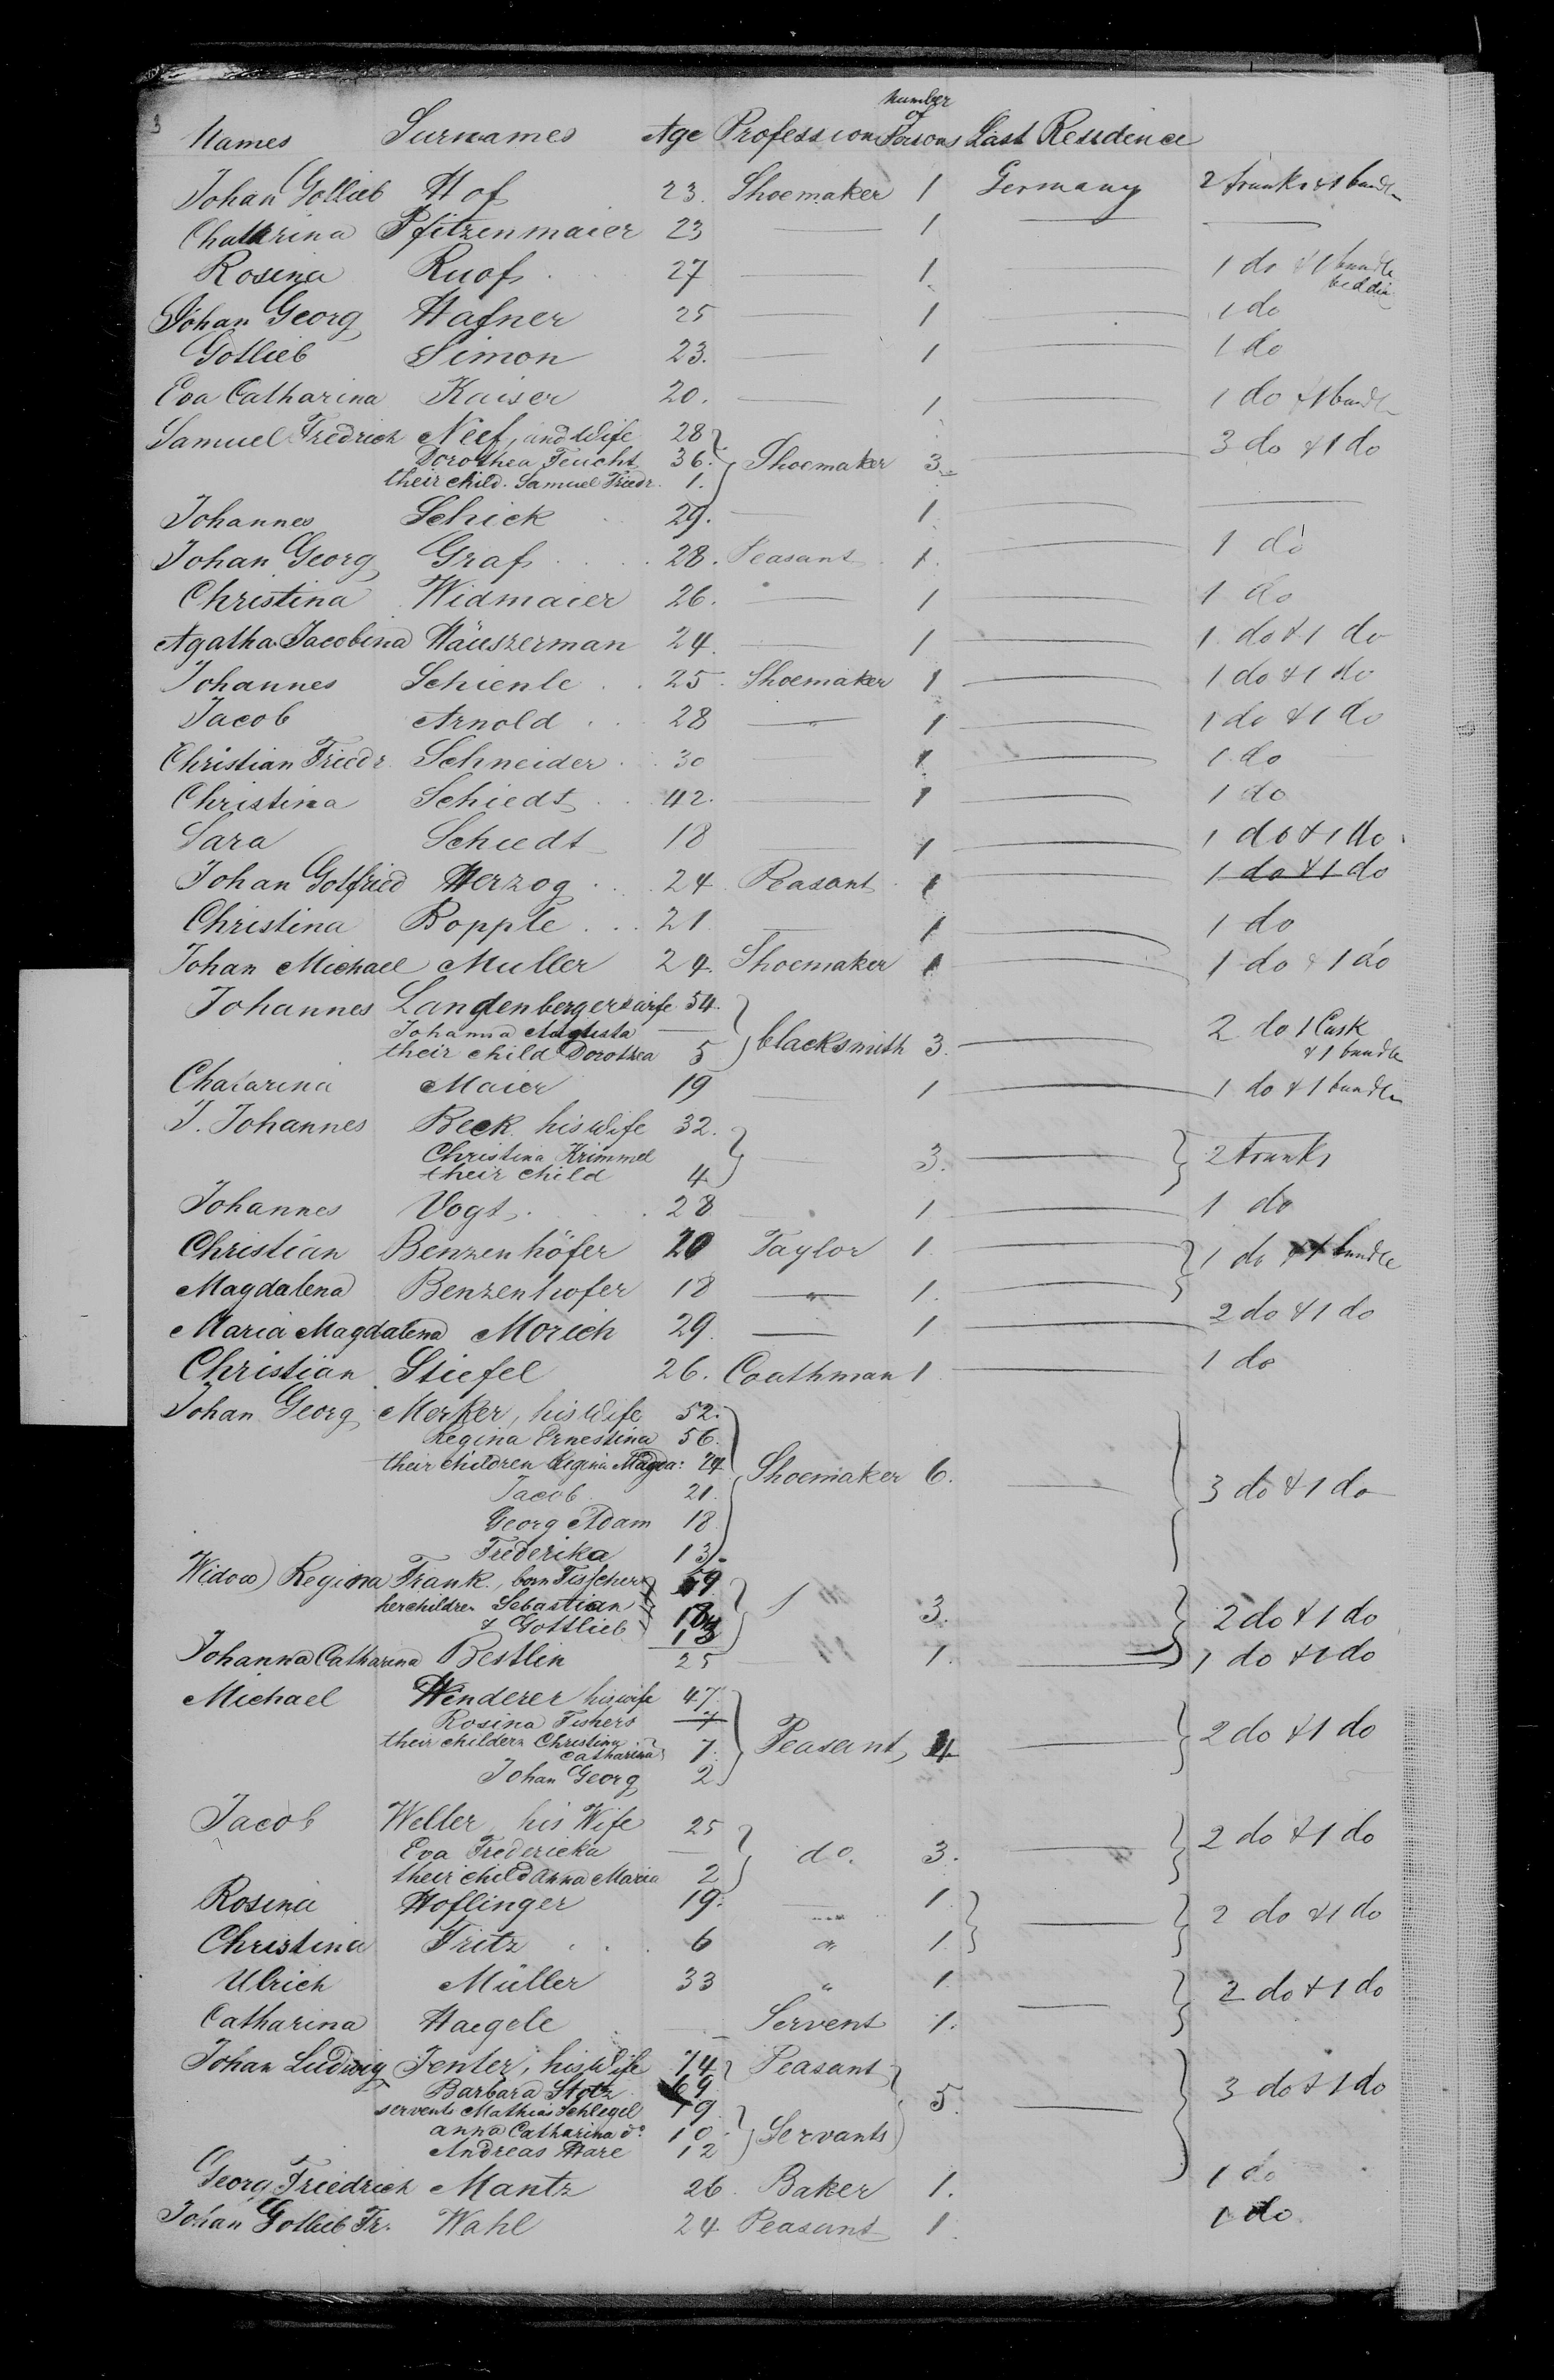 3
Names Surnames Age Profession Number of Persons Last Residence
Johan Gollieb Hof 23. Shoemaker 1 Germany 2 trunks & 1 bundle
Chathrina Pfitzenmaier 23 — 1 — —
Rosina Ruof 27 — 1 — 1 do & 1 bundle beddin
Johan Georg Hafner 25 — 1 — 1 do
Gotlieb Simon 23. — 1 — 1 do
Eva Catharina Kaiser 20. — 1 — 1 do & 1 bundle
Samuel Fredrich Neef, and Wife 28
Dorothea Feucht 36. Shoemaker 3 — 3 do & 1 do
their child. Samuel Friedr. 1.
Johannes Schick 29. — 1 — —
Johan Georg Graf 28. Peasant 1. — 1 do
Christina Widmaier 26. — 1 — 1 do
Agatha Jacobina Häuszerman 24. — 1 — 1 do & 1 do
Johannes Schienle 25. Shoemaker 1 — 1 do & 1 do
Jacob Arnold 28 — " — 1 — 1 do & 1 do
Christian Friedr Schneider 30 — 1 — 1 do
Christina Schiedt 42. — 1 — 1 do
Sara Schiedt 18 — 1 — 1 do & 1 do
Johan Gotfried Herzog 24 Peasant 1 — 1 do & 1 do
Christina Bopple 21 — 1 — 1 do
Johan Michael Muller 24. Shoemaker 1 — 1 do & 1 do
Johannes Langenberger wife 54.
Johanna Augusta — blacksmith 3. — 2 do 1 Cask
their child Dorothea 5 & 1 bundle
Chatarina Maier 19 — 1 — 1 do & 1 bundle
J. Johannes Beck his Wife 32.
Christina Krimmel — 3. — 2 trunks
their child 4
Johannes Vogt 28 — 1 — 1 do
Christian Benzenhöfer 20 Taylor 1. — 1 do & 1 bundle
Magdalena Benzenhofer 18 — " — 1. —
Maria Magdalena Morich 29. — 1 — 2 do & 1 do
Christian Stiefel 26. Coathman 1 — 1 do
Johan Georg Merker, his Wife 52.
Regina Ernestina 56.
their children Regina Magda: 24 Shoemaker 6. 3 do & 1 do
Jacob 21.
Georg Adam 18
Frederika 13.
Widow) Regina Frank., born Fisscher 59
her children Sebastian 18 3. — 2 do & 1 do
& Gottlieb 13
Johanna Catharina Bestlin 25 1. — 1 do & 1 do
Michael Wenderer his wife 47.
Rosina Fishers —
their childern Christina Catharina 7. Peasant 4 — 2 do & 1 do
Johan Georg 2
Jacob Weller, his Wife 25
Eva Fredericka — do. 3. — 2 do & 1 do
their child Anna Maria 2
Rosina Hoflinger 19. — 1. — 2 do & 1 do
Christina Fritz 6 " 1.
Ulrich Müller 33 " 1. — 2 do & 1 do
Catharina Haegele Servent 1.
Johan Ludwig Fenter, his Wife 74 Peasant
Barbara Stotz 69 5. — 3 do & 1 do
servents Mathias Schlegel 19
Anna Catharina do 10 Servants
Andreas Hare 12
Georg Friedrich Mantz 26. Baker 1. 1 do
Johan Gotlieb Fr. Wahl 24 Peasant 1. 1 do.